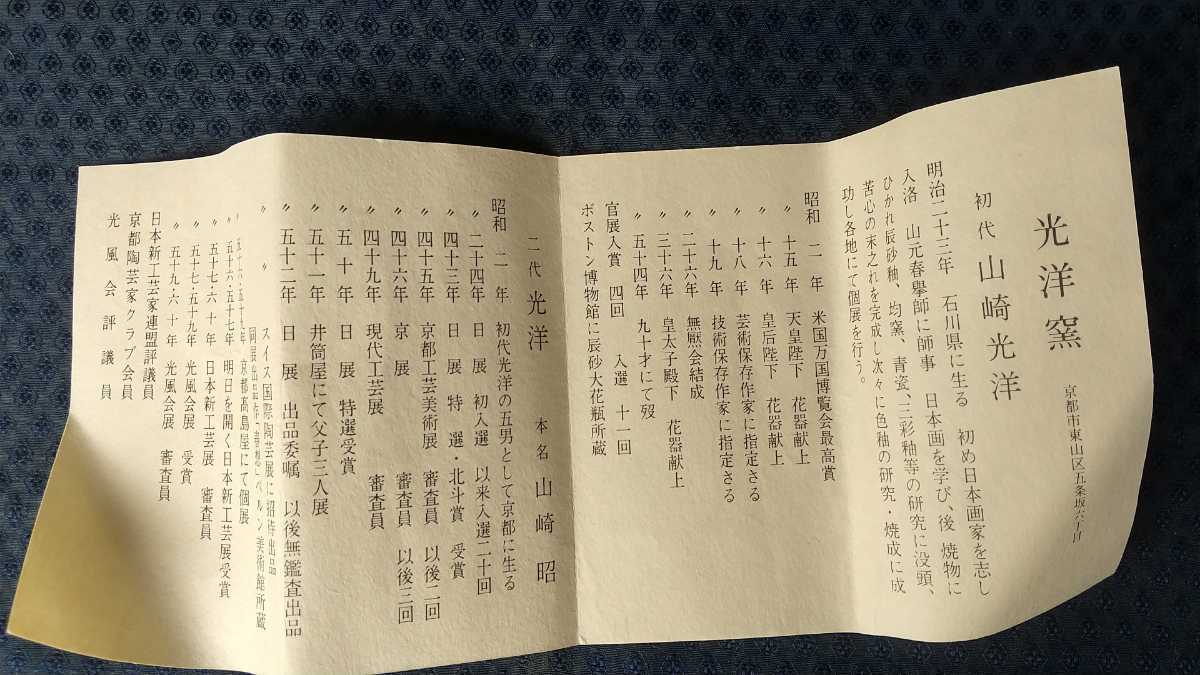 光洋窯
京都市東山区五条坂六丁目
初代 山崎光洋
明治二十三年 石川県に生る 初め日本画家を志し
入洛 山元春擧師に師事 日本画を学び、後 焼物に
ひかれ辰砂釉、均窯、青瓷、三彩釉等の研究に没頭、
苦心の末之れを完成し次々に色釉の研究・焼成に成
功し各地にて個展を行う。
昭和 二年 米国万国博覧会最高賞
〃 十五年 天皇陛下 花器献上
〃 十六年 皇后陛下 花器献上
〃 十八年 芸術保存作家に指定さる
〃 十九年 技術保存作家に指定さる
〃 二十六年 無厭会結成
〃 三十六年 皇太子殿下 花器献上
〃 五十四年 九十才にて歿
官展入賞 四回 入選 十一回
ボストン博物館に辰砂大花瓶所蔵
二代 光洋 本名 山崎 昭
昭和 二年 初代光洋の五男として京都に生る
〃 二十四年 日展 初入選 以来入選二十回
〃 四十三年 日展 特選・北斗賞 受賞
〃 四十五年 京都工芸美術展 審査員 以後二回
〃 四十六年 京展 審査員 以後三回
〃 四十九年 現代工芸展 審査員
〃 五十年 日展 特選受賞
〃 五十一年 井筒屋にて父子三人展
〃 五十二年 日展 出品委嘱 以後無鑑査出品
〃 〃 スイス国際陶芸展に招待出品
同展出品作「春想」ベルン美術館所蔵
京都髙島屋にて個展
〃 五十六・五十七年 明日を開く日本新工芸展受賞
〃 五十七・六十年 日本新工芸展 審査員
〃 五十七・五十九年 光風会展 受賞
〃 五十九・六十年 光風会展 審査員
日本新工芸家連盟評議員
京都陶芸家クラブ会員
光風会評議員